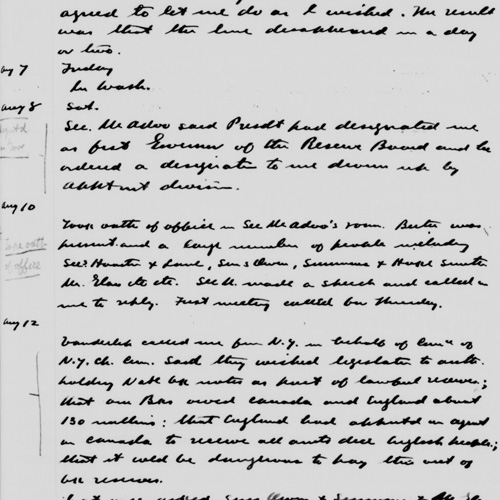 agreed to let me do as I wished. The result
was that the line disappeared in a day
or two.
Aug 7 Friday
In Wash.
Aug 8 Sat.
Sec. McAdoo said Presdt had designated me
as first Governor of the Reserve Board and he
ordered a designation to me drawn up by
appt division.
Aug 10
Took oath of office in Sec McAdoo's room. Bertie was
present and a large number of people including
Secs Houston & Lane, Sens Owen, Simmons & Hoke Smith
Mr. Glass etc etc. Sec M. made a speech and called on
me to reply. First meeting called for Thursday.
Took oath
of office
Aug 12
Vanderlip called me from N.Y. in behalf of
N.Y. Ch. Com. Said they wished legislation to auth.
holding Natl bk notes as part of lawful reserves;
that our Bks owed Canada and England about
150 millions: that England had appointed an agent
in Canada to receive all amts due English people;
that it would be dangerous to pay this out of
bk reserves.